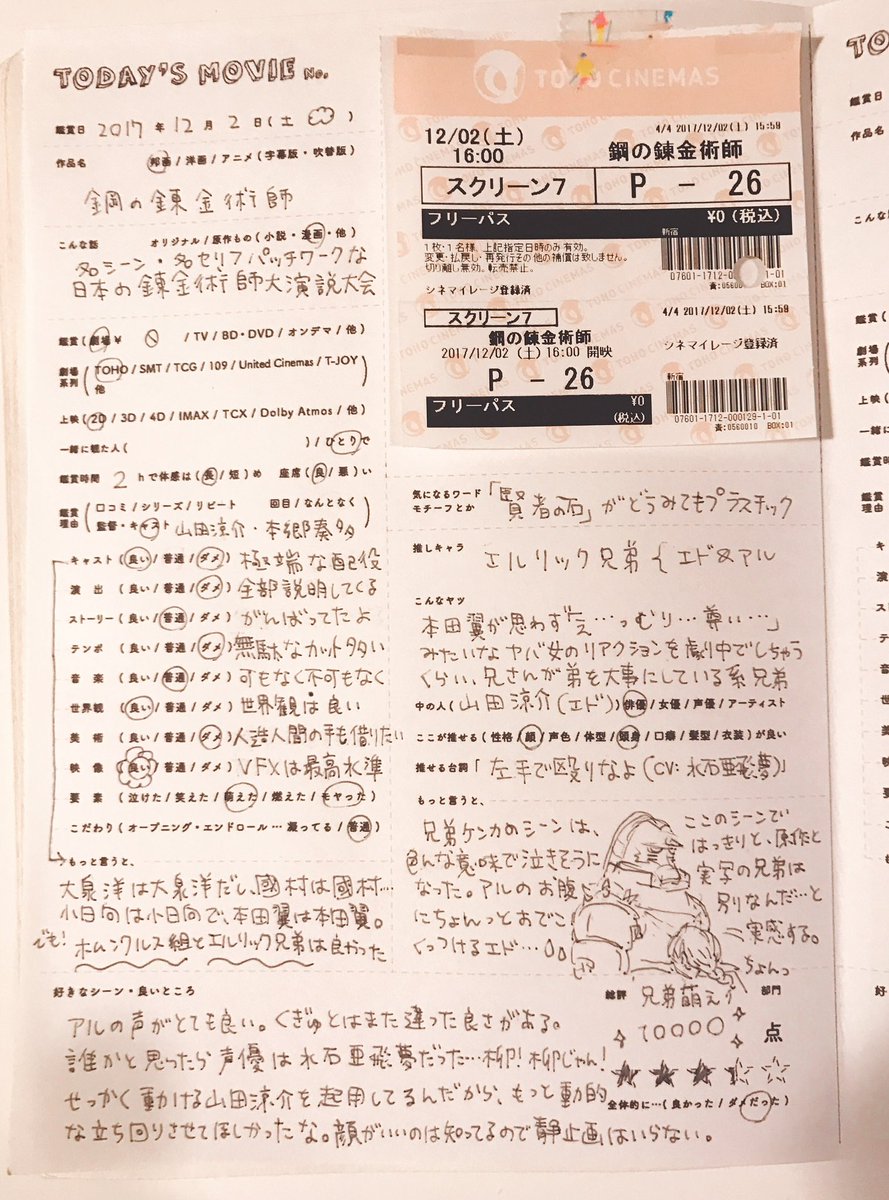 TODAY'S MOVIE No.
鑑賞日 2017 年 12 月 2 日(土 )
作品名 邦画/洋画/アニメ(字幕版・吹替版)
鋼の錬金術師
こんな話 オリジナル/原作もの(小説・漫画・他)
名シーン・名セリフパッチワークな
日本の錬金術師大演説大会
鑑賞(劇場¥ /TV/BD・DVD/オンデマ/他)
劇場系列(TOHO/SMT/TCG/109/United Cinemas/T-JOY
他)
上映(2D/3D/4D/IMAX/TCX/Dolby Atmos/他)
一緒に観た人( )/ひとりで
鑑賞時間 2 hで体感は(長/短)め 座席(良/悪)い
鑑賞理由(口コミ/シリーズ/リピート 回目/なんとなく
監督・キャスト 山田涼介・本郷奏多)
キャスト(良い/普通/ダメ) 極端な配役
演出(良い/普通/ダメ) 全部説明してくる
ストーリー(良い/普通/ダメ) がんばってたよ
テンポ(良い/普通/ダメ) 無駄なカット多い
音楽(良い/普通/ダメ) 可もなく不可もなく
世界観(良い/普通/ダメ) 世界観は良い
美術(良い/普通/ダメ) 人造人間の手も借りたい
映像(良い/普通/ダメ) VFXは最高水準
要素(泣けた/笑えた/萌えた/燃えた/モヤった)
こだわり(オープニング・エンドロール…凝ってる/普通)
もっと言うと、
大泉洋は大泉洋だし、國村は國村…
小日向は小日向で、本田翼は本田翼。
でも!ホムンクルス組とエルリック兄弟は良かった
TOHO CINEMAS
4/4 2017/12/02(土) 15:59
12/02(土)
16:00
鋼の錬金術師
スクリーン7 P - 26
フリーパス ¥0(税込)
1枚・1名様、上記指定日時のみ有効。
変更・払戻し・再発行その他の補償は致しません。
切り離し無効。転売禁止。
シネマイレージ登録済
新宿
07601-1712- -01
責:0560010 BOX:01
スクリーン7
4/4 2017/12/02(土) 15:59
鋼の錬金術師
2017/12/02 (土) 16:00 開映
シネマイレージ登録済
P - 26
フリーパス ¥0
(税込)
新宿
07601-1712-000129-1-01
責:0560010 BOX:01
気になるワード
モチーフとか
「賢者の石」がどうみてもプラスチック
推しキャラ
エルリック兄弟{エド&アル
こんなヤツ
本田翼が思わず「え…っむり…尊い…」
みたいなヤバ女のリアクションを劇中でしちゃう
くらい、兄さんが弟を大事にしている系兄弟
中の人(山田涼介(エド))俳優/女優/声優/アーティスト
ここが推せる(性格/顔/声色/体型/頭身/口癖/髪型/衣装)が良い
推せる台詞「左手で殴りなよ(CV:水石亜飛夢)」
もっと言うと、
兄弟ケンカのシーンは、
色んな意味で泣きそうに
なった。アルのお腹
にちょんっとおでこ
くっつけるエド…
ここのシーンで
はっきりと、原作と
実写の兄弟は
別りなんだ…と
実感する。
ちょんっ
好きなシーン・良いところ
アルの声がとても良い。くぎゅとはまた違った良さがある。
誰かと思ったら声優は水石亜飛夢だった…柳!柳じゃん!
せっかく動ける山田涼介を起用してるんだから、もっと動的
な立ち回りさせてほしかったな。顔がいいのは知ってるので静止画はいらない。
総評 兄弟萌え 部門
10000 点
全体的に…(良かった/ダメだった)
TO
鑑賞日
作品名
こんな
鑑賞(
劇場系列
上映(
一緒に
鑑賞時
鑑賞理由